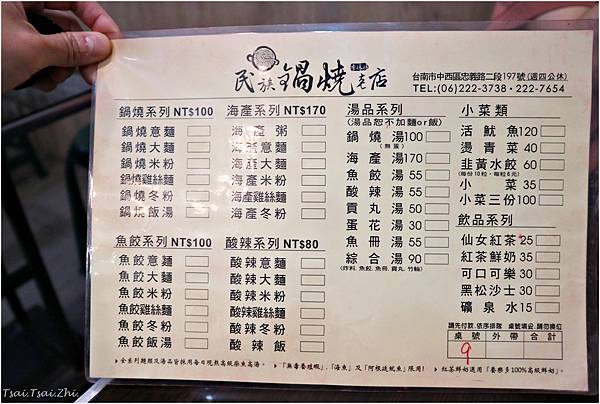 民族鍋燒老店
台南市中西區忠義路二段197號(週四公休)
TEL:(06)222-3738‧222-7654
鍋燒系列 NT$100
鍋燒意麵
鍋燒大麵
鍋燒米粉
鍋燒雞絲麵
鍋燒冬粉
鍋燒飯湯
魚餃系列 NT$100
魚餃意麵
魚餃大麵
魚餃米粉
魚餃雞絲麵
魚餃冬粉
魚餃飯湯
海產系列 NT$170
海產粥
海產意麵
海產大麵
海產米粉
海產雞絲麵
海產冬粉
酸辣系列 NT$80
酸辣意麵
酸辣大麵
酸辣米粉
酸辣雞絲麵
酸辣冬粉
酸辣飯
湯品系列
(湯品恕不加麵or飯)
鍋燒湯100
(無蛋)
海產湯170
魚餃湯 55
酸辣湯 55
貢丸湯 50
蛋花湯 30
魚冊湯 55
綜合湯 90
(炸料.魚餃.魚冊.貢丸.竹輪)
小菜類
活魷魚120
燙青菜 40
韭黃水餃 60
(每份10粒,每粒6元)
小菜 35
小菜三份100
飲品系列
仙女紅茶 25
紅茶鮮奶 35
可口可樂 30
黑松沙士 30
礦泉水 15
請先付款.依序排隊 桌號填妥.請勿換位
桌號 外帶 合計
9
▸全系列麵類及湯品皆採用每日現熬高級柴魚高湯。 ▸「無毒養殖蝦」、「海魚」及「阿根廷魷魚」限用! ▸紅茶鮮奶選用「養樂多100%高級鮮奶」。
Tsai.Tsai.Zhi.